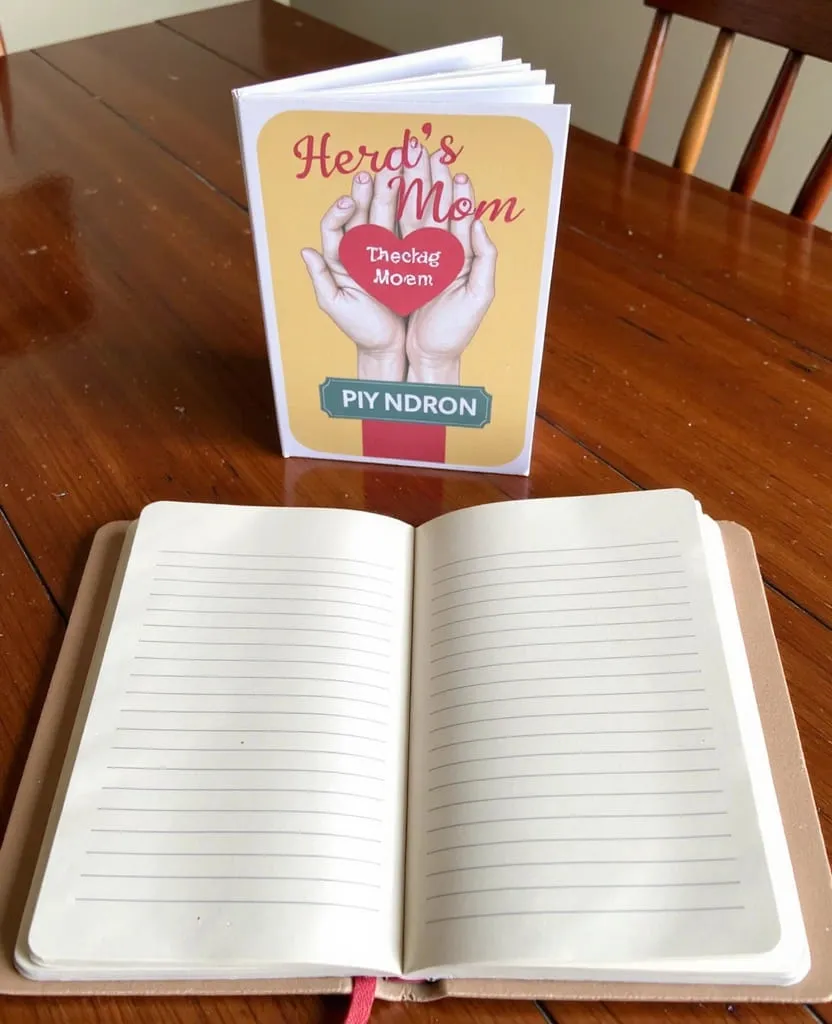 Herd's
Mom
Theckag
Moem
PIY NDRON